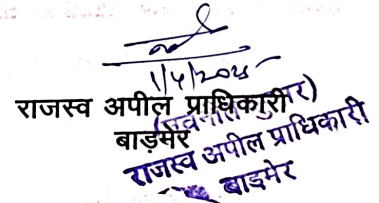 1/4/2025
राजस्व अपील प्राधिकारी
बाड़मेर
राजस्व अपील प्राधिकारी
बाडमेर